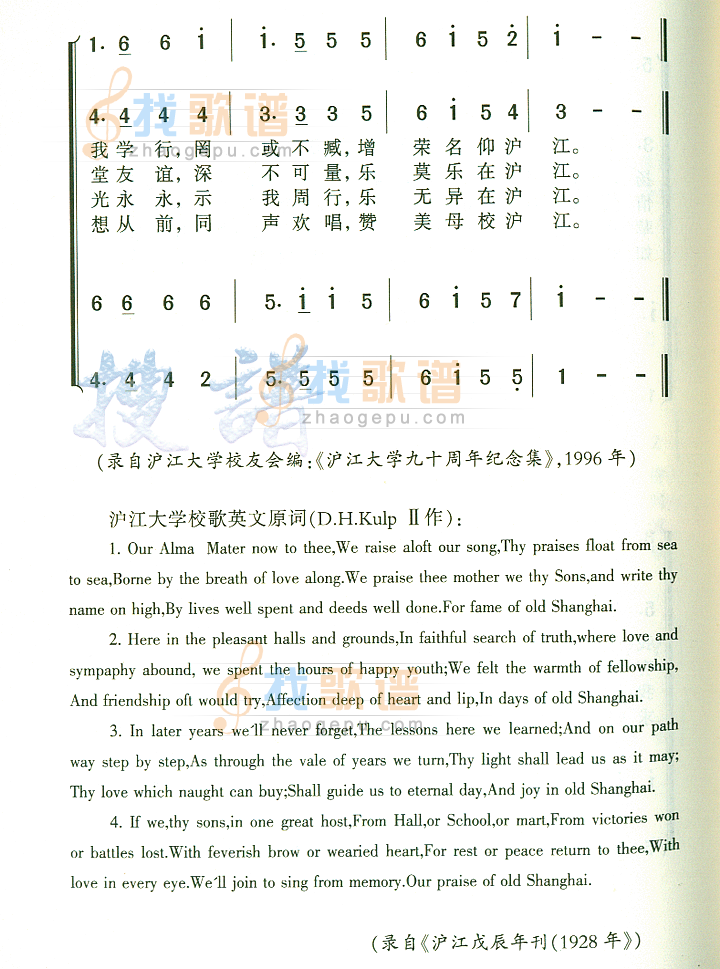 1. 6 6 i | i. 5 5 5 | 6 i 5 2 | i - - ‖
4. 4 4 4 | 3. 3 3 5 | 6 i 5 4 | 3 - - ‖
我学行,罔 或不臧,增 荣名仰沪 江。
堂友谊,深 不可量,乐 莫乐在沪 江。
光永永,示 我周行,乐 无异在沪 江。
想从前,同 声欢唱,赞 美母校沪 江。
6 6 6 6 | 5. i i 5 | 6 i 5 7 | i - - ‖
4. 4 4 2 | 5. 5 5 5 | 6 i 5 5 | 1 - - ‖
搜谱
找歌谱
zhaogepu.com
(录自沪江大学校友会编:《沪江大学九十周年纪念集》,1996年)
沪江大学校歌英文原词(D.H.Kulp Ⅱ作):
1. Our Alma Mater now to thee,We raise aloft our song,Thy praises float from sea
to sea,Borne by the breath of love along.We praise thee mother we thy Sons,and write thy
name on high,By lives well spent and deeds well done.For fame of old Shanghai.
2. Here in the pleasant halls and grounds,In faithful search of truth,where love and
sympaphy abound, we spent the hours of happy youth;We felt the warmth of fellowship,
And friendship oft would try,Affection deep of heart and lip,In days of old Shanghai.
3. In later years we'll never forget,The lessons here we learned;And on our path
way step by step,As through the vale of years we turn,Thy light shall lead us as it may;
Thy love which naught can buy;Shall guide us to eternal day,And joy in old Shanghai.
4. If we,thy sons,in one great host,From Hall,or School,or mart,From victories won
or battles lost.With feverish brow or wearied heart,For rest or peace return to thee,With
love in every eye.We'll join to sing from memory.Our praise of old Shanghai.
(录自《沪江戊辰年刊(1928年》)